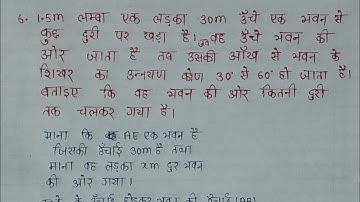 6. 1.5m लम्बा एक लड़का 30m ऊँचे एक भवन से
कुछ दुरी पर खड़ा है। जब वह ऊँचे भवन की
ओर जाता है तब उसकी आँख से भवन के
शिखर का उन्नयण कोण 30° से 60° हो जाता है।
बताइए कि वह भवन की ओर कितनी दुरी
तक चलकर गया है।
माना कि AE एक भवन है
जिसकी ऊँचाई 30m है तथा
माना वह लड़का xm दुर भवन
की ओर गया।
की ऊँचाई